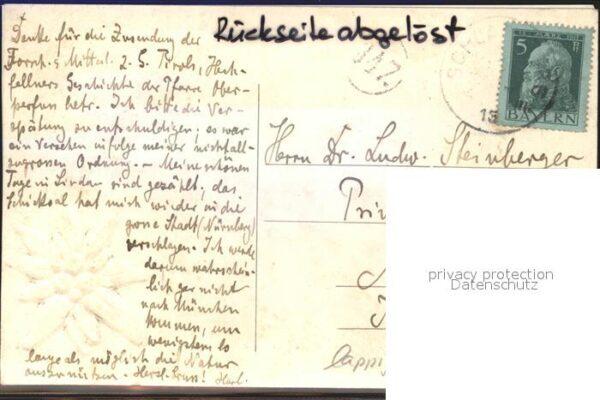 Rückseite abgelöst
Danke für die Zusendung der
Forsch. z. Mittel. z. G. Tirols,
fellners Geschichte der Pfarre Ober-
perfuss betr. Ich bitte die Ver-
spätung zu entschuldigen, es war
ein Versehen infolge meiner nicht
grossen Ordnung. – Meine schönen
Tage in Lindau sind gezählt, das
Schicksal hat mich wieder in die
grosse Stadt (Nürnberg)
verschlagen. Ich werde
darum wahrschein-
lich gar nicht
nach München
kommen, um
wenigstens so
lange als möglich die Natur
auszunützen. Herzl. Gruss!
5 Pf
BAYERN
13
Herrn Dr. Ludw. Steinberger
Pri
privacy protection
Datenschutz